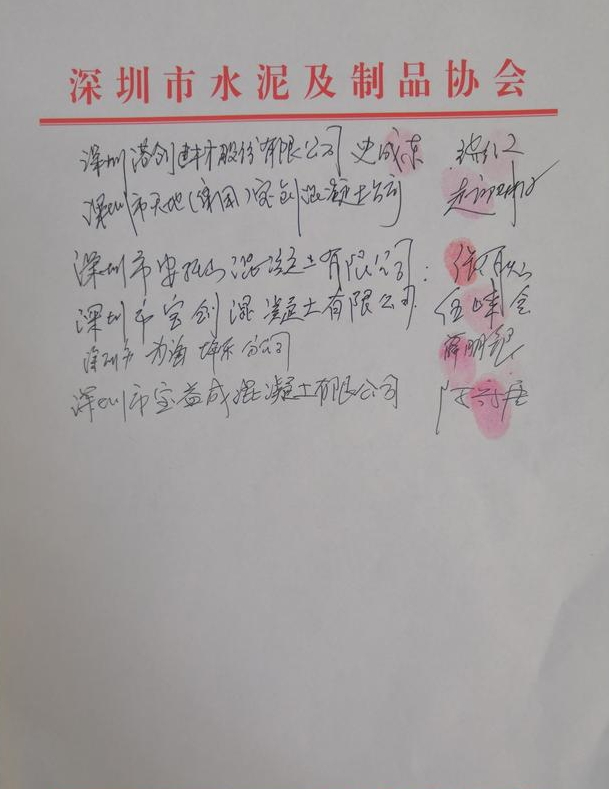 深圳市水泥及制品协会
深圳港创建材股份有限公司 史成东
深圳市天地(集团)宝创混凝土公司
深圳市安托山混凝土有限公司:
深圳市宝创混凝土有限公司 伍峰
深圳市为海坪东分公司 薛明
深圳市宝益成混凝土有限公司